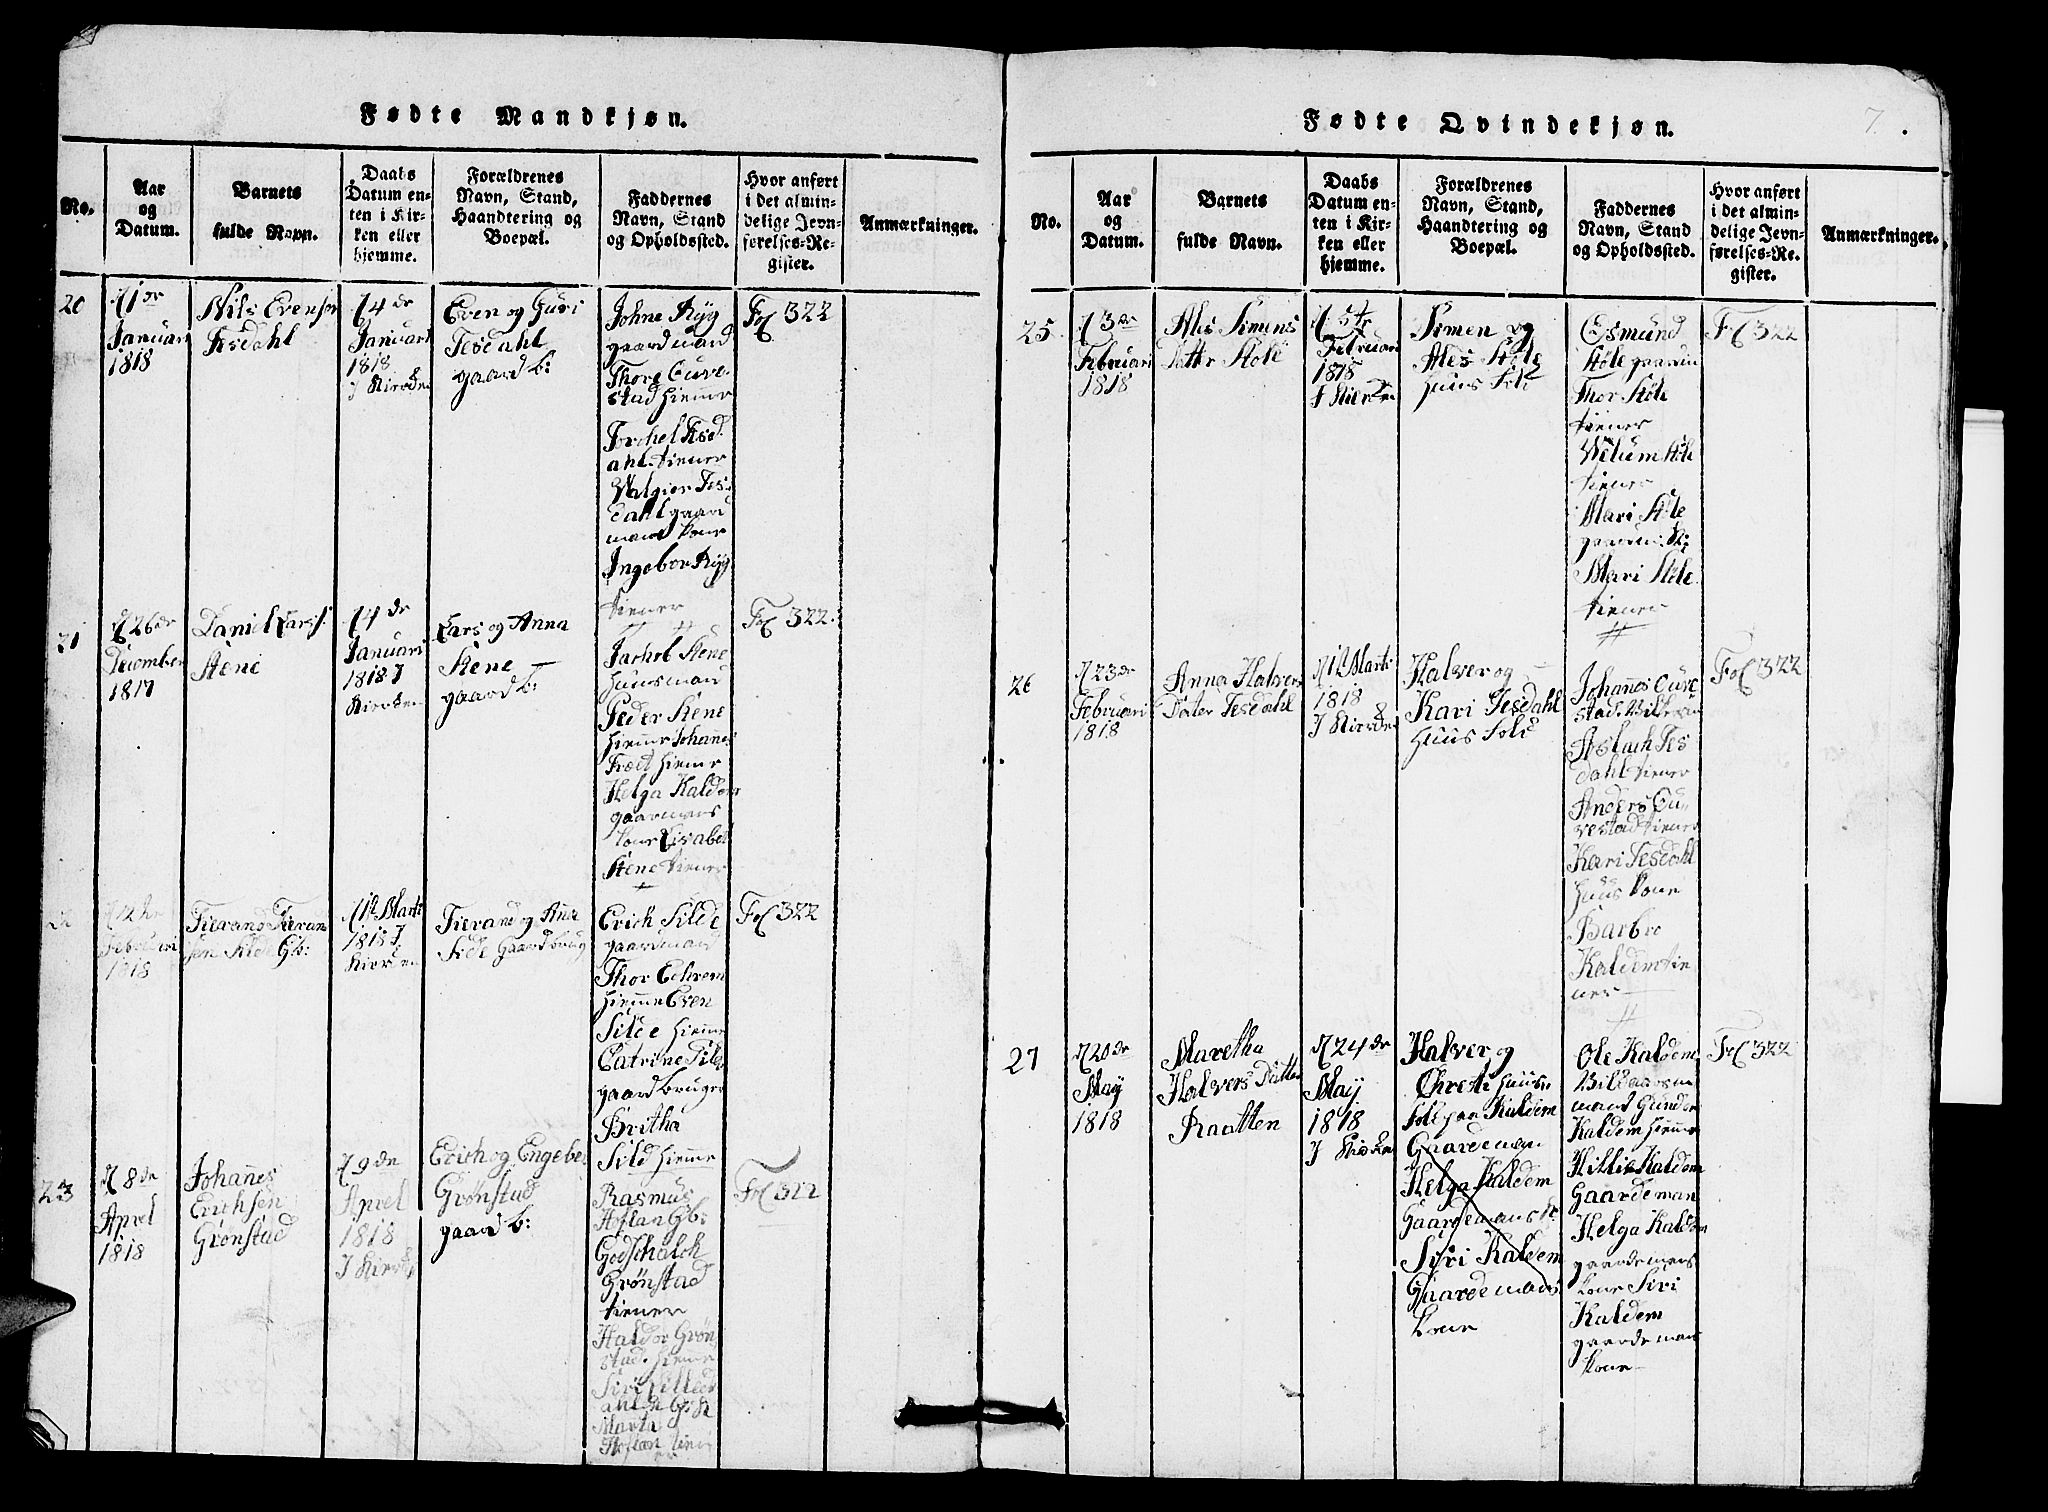 Fødte Mandkjøn.
No.
Aar
og
Datum.
Barnets
fulde Navn.
Daabs
Datum en-
ten i Kir-
ken eller
hjemme.
Forældrenes
Navn, Stand,
Haandtering og
Boepæl.
Faddernes
Navn, Stand
og Opholdssted.
Hvor anført
i det almin-
delige Jevn-
førelses-Re-
gister.
Anmærkninger.
20
1
Januari
1818
Nils Evensøn
Tesdahl
4de
Januari
1818
I Kircken
Even og Guri
Tesdahl
gaard b:
Johne Ryg
gaardmand
Thore Curve-
stad hiemme
Torchel Tesd
ahl tiener
Walgier Tes-
dahl gaard
mans kone
Ingebor Ryg
tiener
Fol 322
21
26de
December
1817
Daniel Larss:
Stene
4de
Januari
1818 I
Kircken
Lars og Anna
Stene
gaard b:
Jachob Stene
Huusmand
Peder Stene
hieme Johannes
hieme
Helga Kaldem
gaarmans
kone Lisabet
Stene tiener
Fol 322
Februari
1818
Tierand Tieran
sen Silde Gb:
1ste Marti
1818 I
Kircken
Tierand og Anne
Silde Gaardbrug
Erich Silde
gaardmand
Thor Echrem
hieme Even
Silde hieme
Catrine Silde
gaardbruger
Britha
Sild hieme
Fol 322
23
8de
Aprel
1818
Johanes
Erichsen
Grønstad
9de
Aprel
1818
I Kircken
Erich og Engebor
Grønstad
gaard b:
Rasmus
Hoflan Gb:
Godschalch
Grønstad
tiener
Haldor Grøn
stad. hieme
Siri Silled
ahl
Marta
Hoflan
Fol 322
Fødte Qvindekjøn.
7.
No.
Aar
og
Datum.
Barnets
fulde Navn.
Daabs
Datum en-
ten i Kir-
ken eller
hjemme.
Forældrenes
Navn, Stand,
Haandtering og
Boepæl.
Faddernes
Navn, Stand
og Opholdssted.
Hvor anført
i det almin-
delige Jevn-
førelses-Re-
gister.
Anmærkninger.
25
3
Februari
1818
Ales Simens
Datter Støle
5te
Februari
1818
I Kircken
Simen og
Ales Støle
Huus Folk
Osmund
Støle gaarm
Thor Støle
tiener
Wilum Støle
tiener
Mari Støle
gaarm: K:
Mari Støle
tiener
Fol 322
26
23de
Februari
1818
Anna Halvers
Dater Tesdahl
1ste Marti
1818
I Kircken
Halver og
Kari Tesdahl
Huus Folk
Johannes Curve
stad.
Aslach Tes
dahl tiener
Anders Cur
vestad tiener
Kari Tesdahl
Huus kone
Barbro
Kaldem tie
ner
Fol 322
27
20de
May
1818
Maretha
Halvers Datter
Raatten
24de
May
1818
I Kircken
Halver og
Christi Huus
Folk paa Kaldem
Gaardeman
Helga Kaldem
Gaardemans K:
Siri Kaldem
Gaardemans
kone
Ole Kaldem
mand Gunder
Kaldem hieme
Hillie Kaldem
Gaardeman
Helga Kaldem
gaardemans
kone Siri
Kaldem
gaardemans
kone
Fol 322